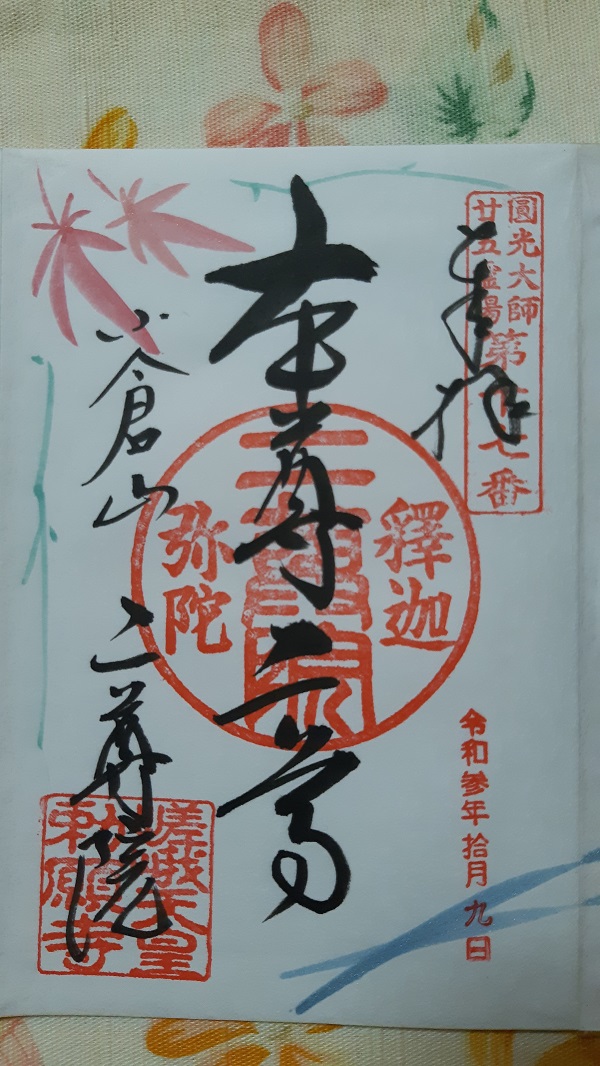 圓光大師
廿五霊場
第十七番
奉拝
釋迦
二尊院
弥陀
本尊二尊
小倉山
二尊院
嵯峨天皇
勅願寺
令和参年拾月九日